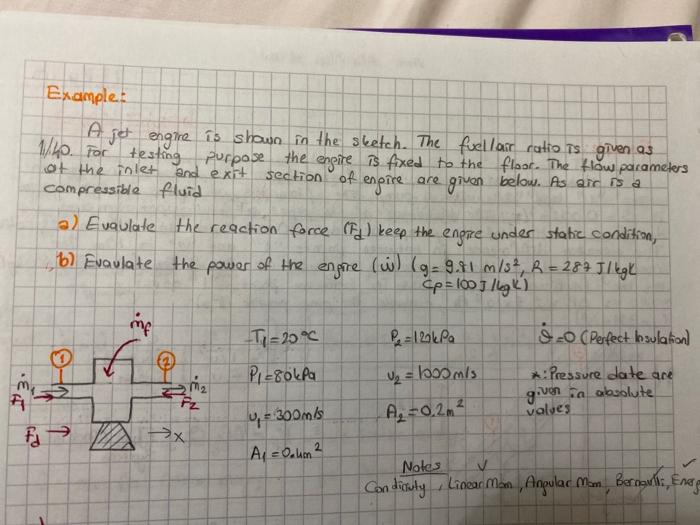 Example:
A jet engine is shown in the sketch. The fuel/air ratio is given as
1/40. For testing purpose the engine is fixed to the floor. The flow parameters
at the inlet and exit section of engine are given below. As air is a
compressible fluid
a) Evaulate the reaction force (Fd) keep the engine under static condition,
b) Evaulate the power of the engine (ẇ) (g= 9.81 m/s², R = 287 J/kgK
Cp=100J/kgK)
ṁf
T1=20°C
P2=120kPa
Q̇=0 (Perfect Insulation)
1
2
P1=80kPa
υ2=1000m/s
*: Pressure date are
given in absolute
values
ṁ1
ṁ2
F1
F2
υ1=300m/s
A2=0.2m²
Fd
x
A1=0.4m²
Notes
Condinuty, Linear Mom, Angular Mom, Bernoulli, Energ